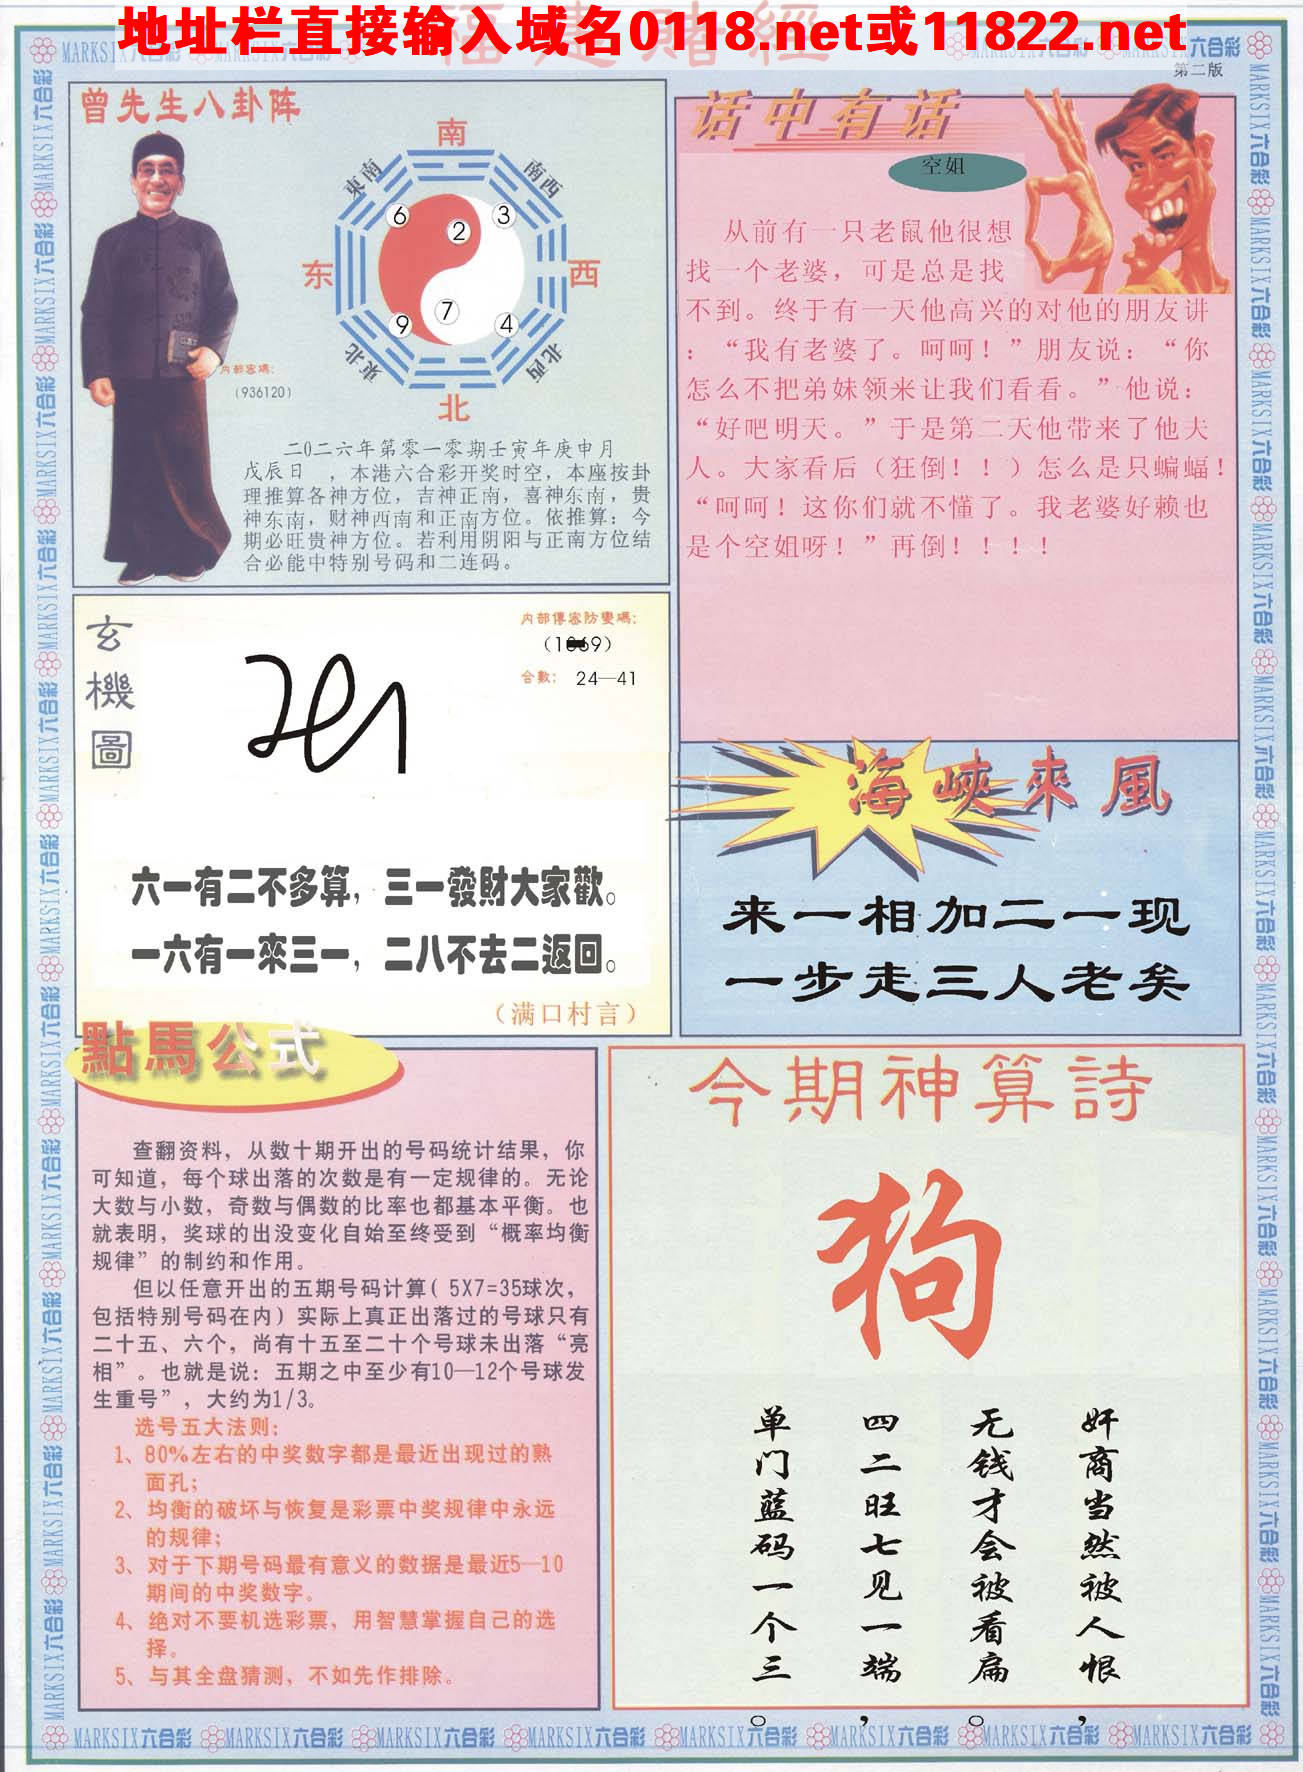 地址栏直接输入域名0118.net或11822.net
福建赌經
第二版
曾先生八卦阵
南
東南
南西
6
3
2
东
西
7
9
4
東北
北西
北
内部密碼:
(936120)
二0二六年第零一零期壬寅年庚申月
戊辰日 ,本港六合彩开奖时空,本座按卦
理推算各神方位,吉神正南,喜神东南,贵
神东南,财神西南和正南方位。依推算:今
期必旺贵神方位。若利用阴阳与正南方位结
合必能中特别号码和二连码。
话中有话
空姐
从前有一只老鼠他很想
找一个老婆,可是总是找
不到。终于有一天他高兴的对他的朋友讲
:“我有老婆了。呵呵!”朋友说:“你
怎么不把弟妹领来让我们看看。”他说:
“好吧明天。”于是第二天他带来了他夫
人。大家看后(狂倒!!)怎么是只蝙蝠!
“呵呵!这你们就不懂了。我老婆好赖也
是个空姐呀!”再倒!!!!
玄機圖
内部傳密防變碼:
合數: 24—41
六一有二不多算,三一發財大家歡。
一六有一來三一,二八不去二返回。
(满口村言)
海峽來風
来一相加二一现
一步走三人老矣
點馬公式
查翻资料,从数十期开出的号码统计结果,你
可知道,每个球出落的次数是有一定规律的。无论
大数与小数,奇数与偶数的比率也都基本平衡。也
就表明,奖球的出没变化自始至终受到“概率均衡
规律”的制约和作用。
但以任意开出的五期号码计算( 5X7=35球次,
包括特别号码在内)实际上真正出落过的号球只有
二十五、六个,尚有十五至二十个号球未出落“亮
相”。也就是说:五期之中至少有10—12个号球发
生重号”,大约为1/3。
选号五大法则:
1、80%左右的中奖数字都是最近出现过的熟
面孔;
2、均衡的破坏与恢复是彩票中奖规律中永远
的规律;
3、对于下期号码最有意义的数据是最近5—10
期间的中奖数字。
4、绝对不要机选彩票,用智慧掌握自己的选
择。
5、与其全盘猜测,不如先作排除。
今期神算詩
狗
奸商当然被人恨,
无钱才会被看扁。
四二旺七见一端,
单门蓝码一个三。
MARKSIX六合彩 MARKSIX六合彩 MARKSIX六合彩 MARKSIX六合彩 MARKSIX六合彩 MARKSIX六合彩 MARKSIX六合彩 MARKSIX六合彩